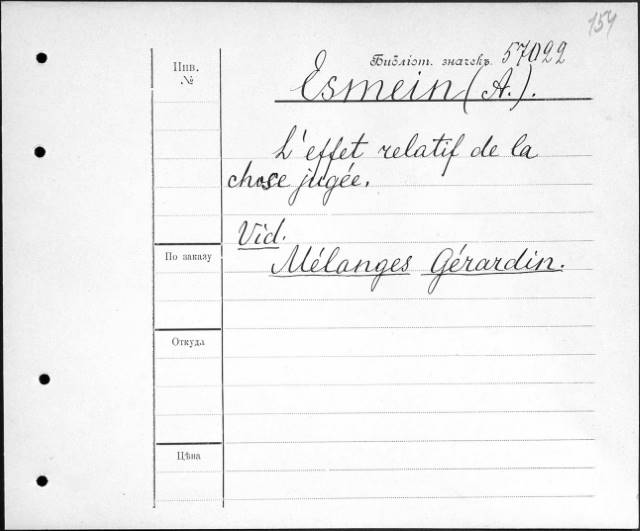 154
Библіот. значекъ 57022
Инв.
№
Esmein (A.).
L'effet relatif de la
chose jugée.
Vid.
Mélanges Gérardin.
По заказу
Откуда
Цѣна